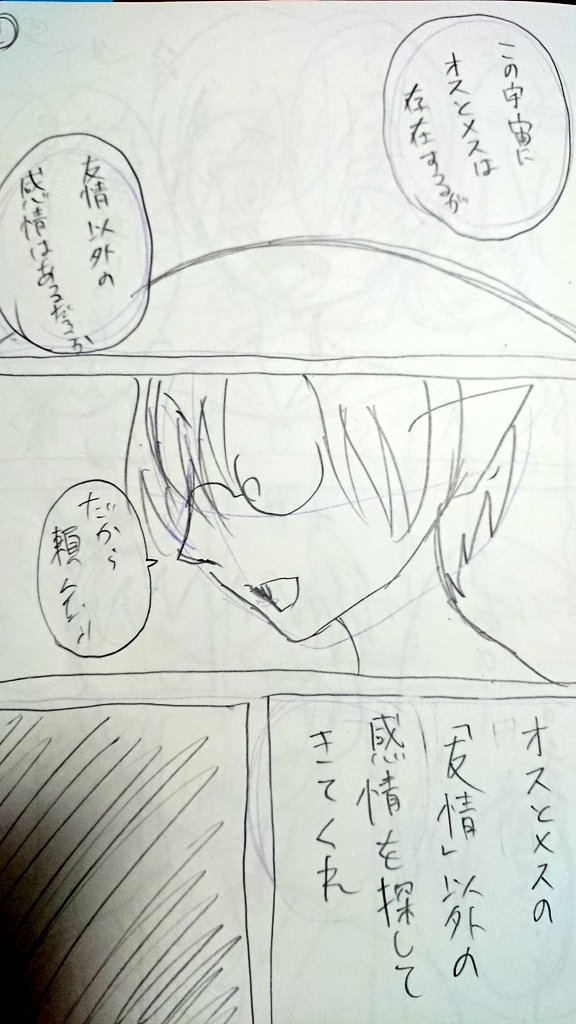 この宇宙に
オスとメスは
存在するが
友情以外の
感情はあるだろうか
だから
頼んだ
オスとメスの
「友情」以外の
感情を探して
きてくれ